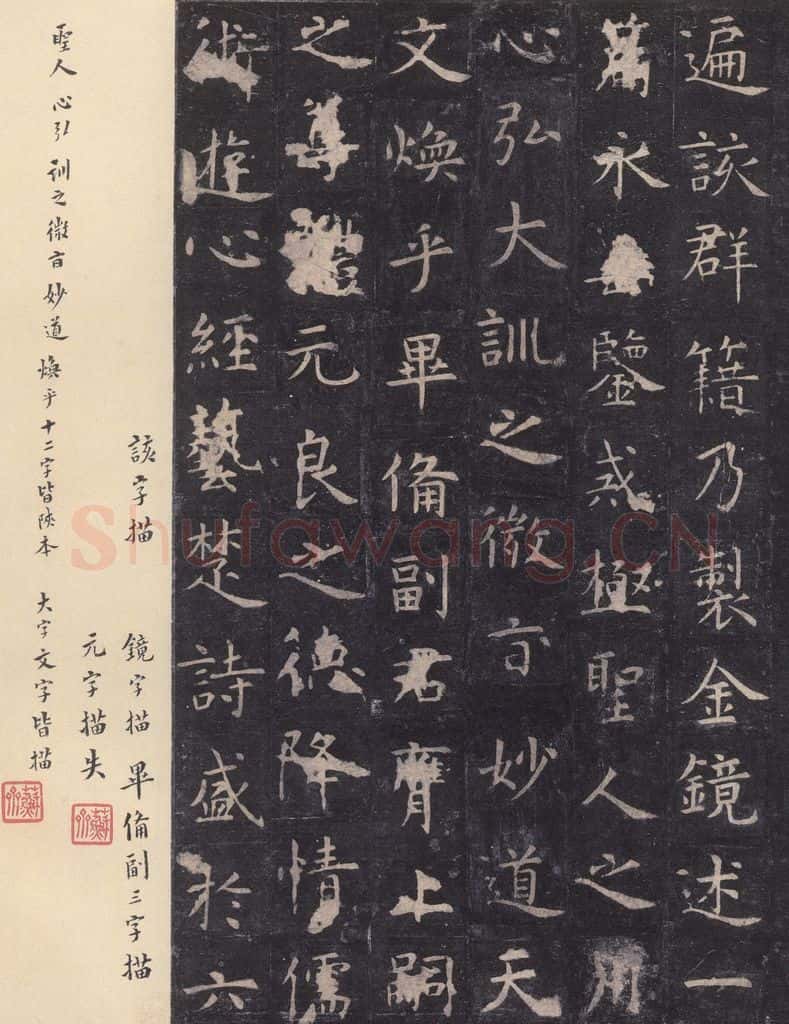 遍該群籍乃製金鏡述一
篇永垂鑒戒極聖人之用
心弘大訓之微旨妙道天
文煥乎畢俻副君膺上嗣
之尊體元良之德降情儒
術遊心經藝楚詩盛於六
該字描 鏡字描 畢俻副三字描
元字描失
聖人 心弘 訓之微旨妙道 煥乎十二字皆陝本 大字文字皆描
Shufawang.CN